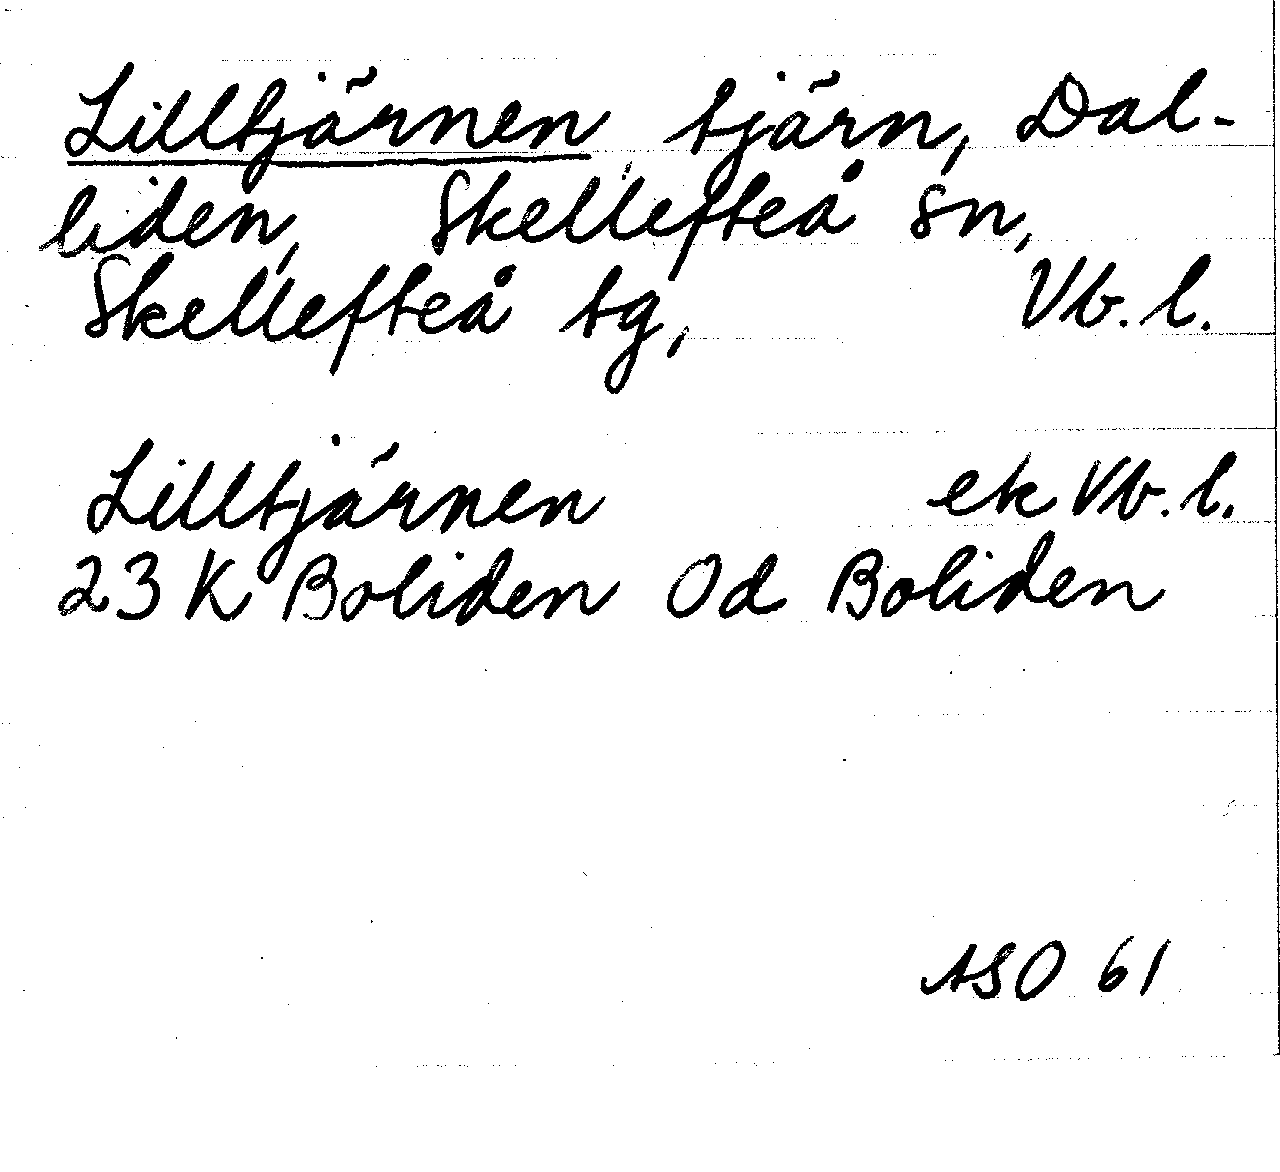 Lilltjärnen, tjärn, Dal-
liden, Skellefteå sn,
Skellefteå tg, Vb. l.
Lilltjärnen ek Vb. l.
23 K Boliden Od Boliden
ASO 61